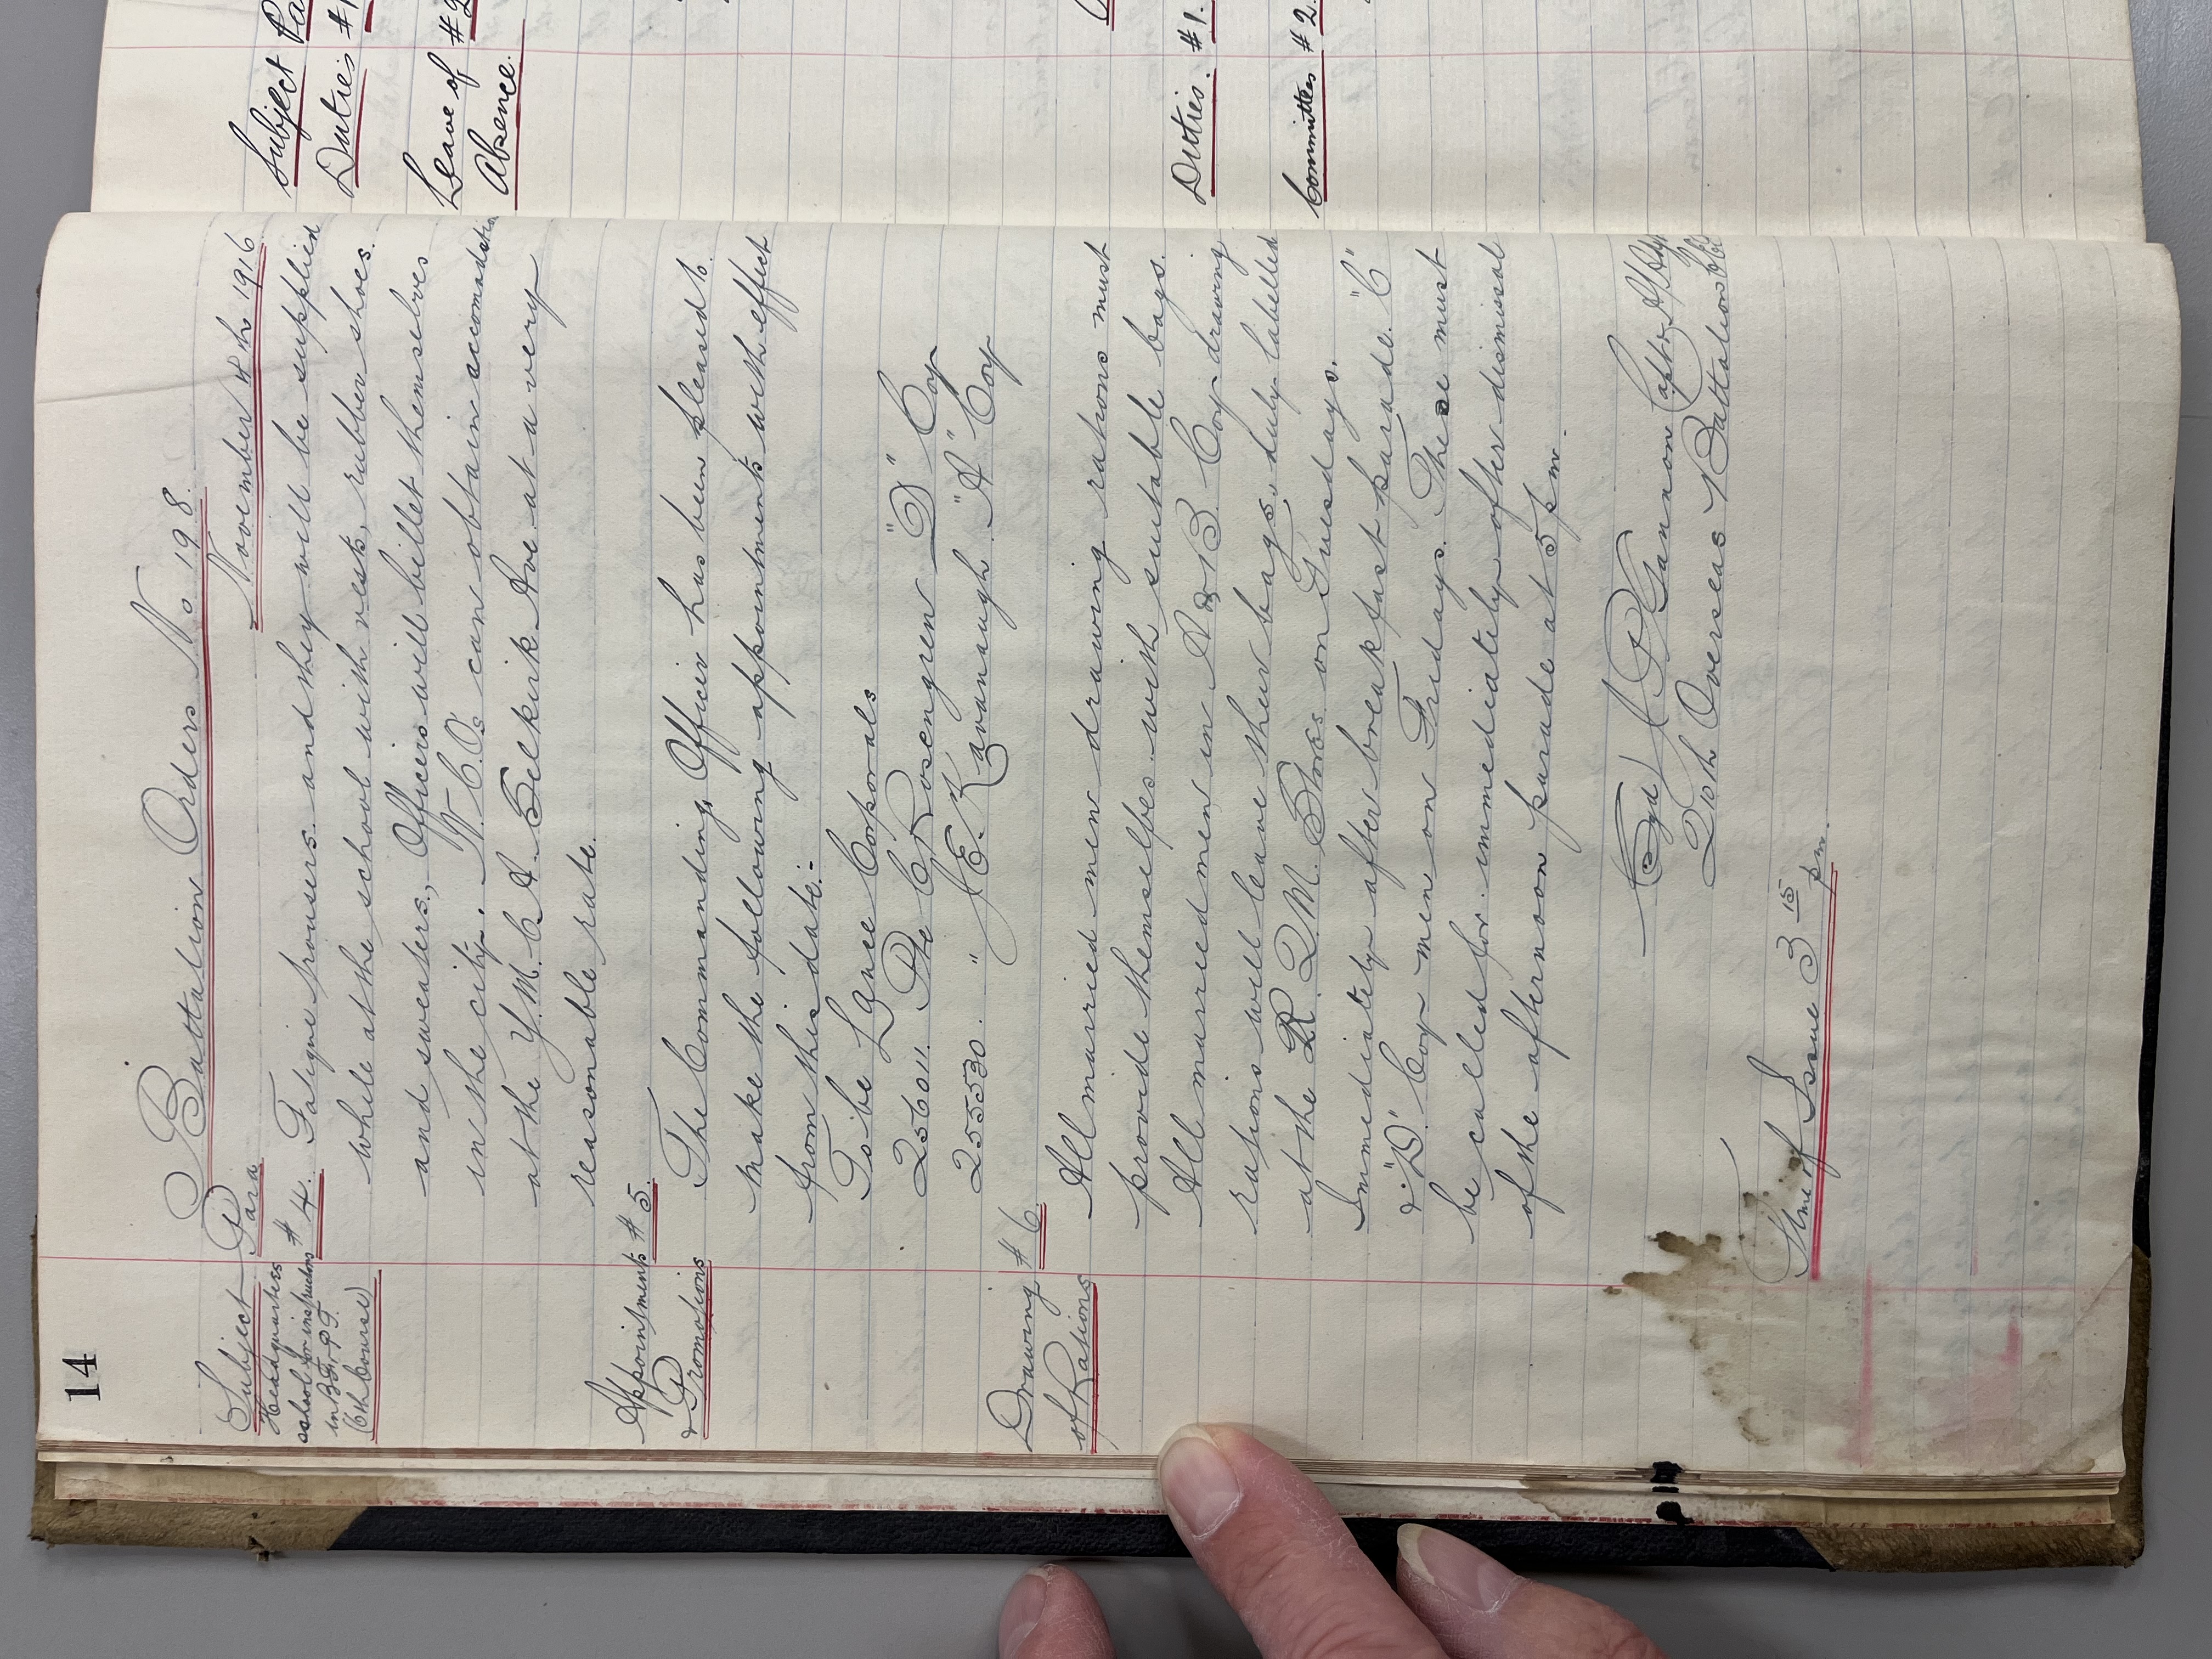 14
Battalion Orders No 198.
Subject Para November 4th 1916
Headquarters # 4. Fatigue trousers and they will be supplied
school for instruction while at the school with vests, rubber shoes.
in B.F. & P.T. and sweaters, Officers will billet themselves
(6th Course) in the city. N.C.Os can obtain accomodation
at the Y.M.C.A. Selkirk Ave at a very
reasonable rate.
Appointments # 5. The Commanding Officer has been pleased to
& Promotions make the following appointments with effect
from this date:-
To be Lance Corporals
256011. Pte C Rosengren "D" Coy
255530. " J E. Kavanaugh "A" Coy
Drawing # 6 All married men drawing rations must
of Rations provide themselfes with suitable bags.
All married men in A & B Coy drawing
rations will leave their bags, duly labelled
at the R.Q.M. Stores on Tuesdays.
Immediately after breakfast parade. "C"
& "D" Coy men on Fridays. These must
be called for immediately after dismissal
of the afternoon parade at 5 pm.
(Sgd) J P Gannon Capt &
Overseas Battalion
Time of Issue 3 15 pm.
Subject
Duties #1
Leave of #2
Absence.
Duties. #1.
Committees #2.